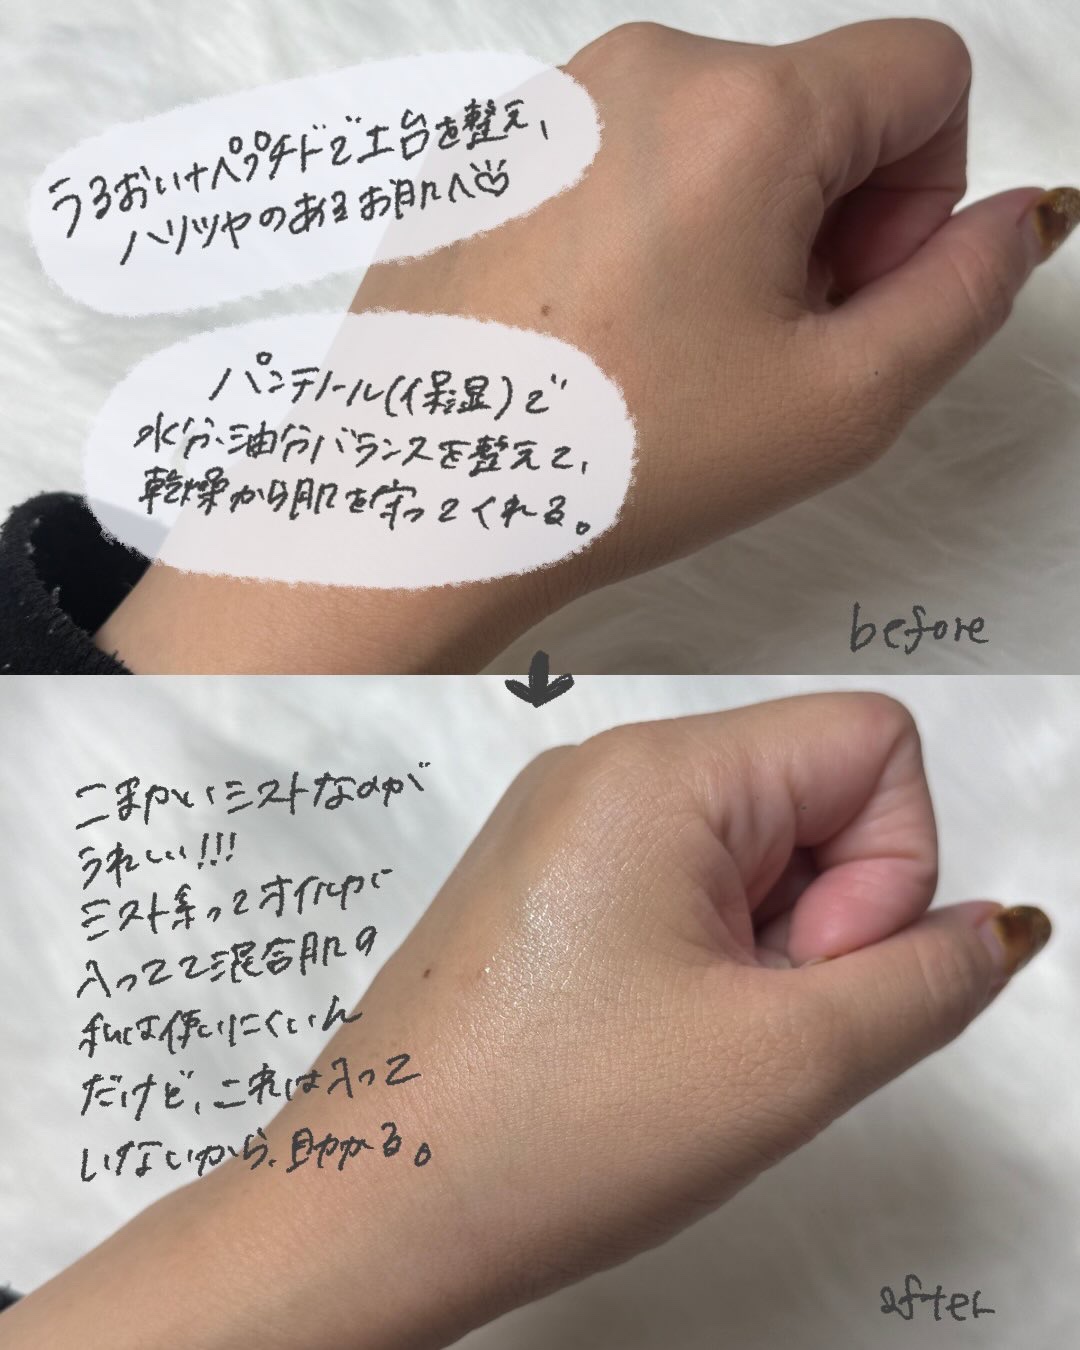 うるおいナペプチドで土台を整え、
ハリツヤのあるお肌へ♡
パンテノール(保湿)で
水分、油分バランスを整えて、
乾燥から肌を守ってくれる。
before
こまかいミストなのが
うれしい!!!
ミスト系ってオイルが
入ってて混合肌の
私は使いにくいん
だけど、これは入って
いないから、助かる。
after